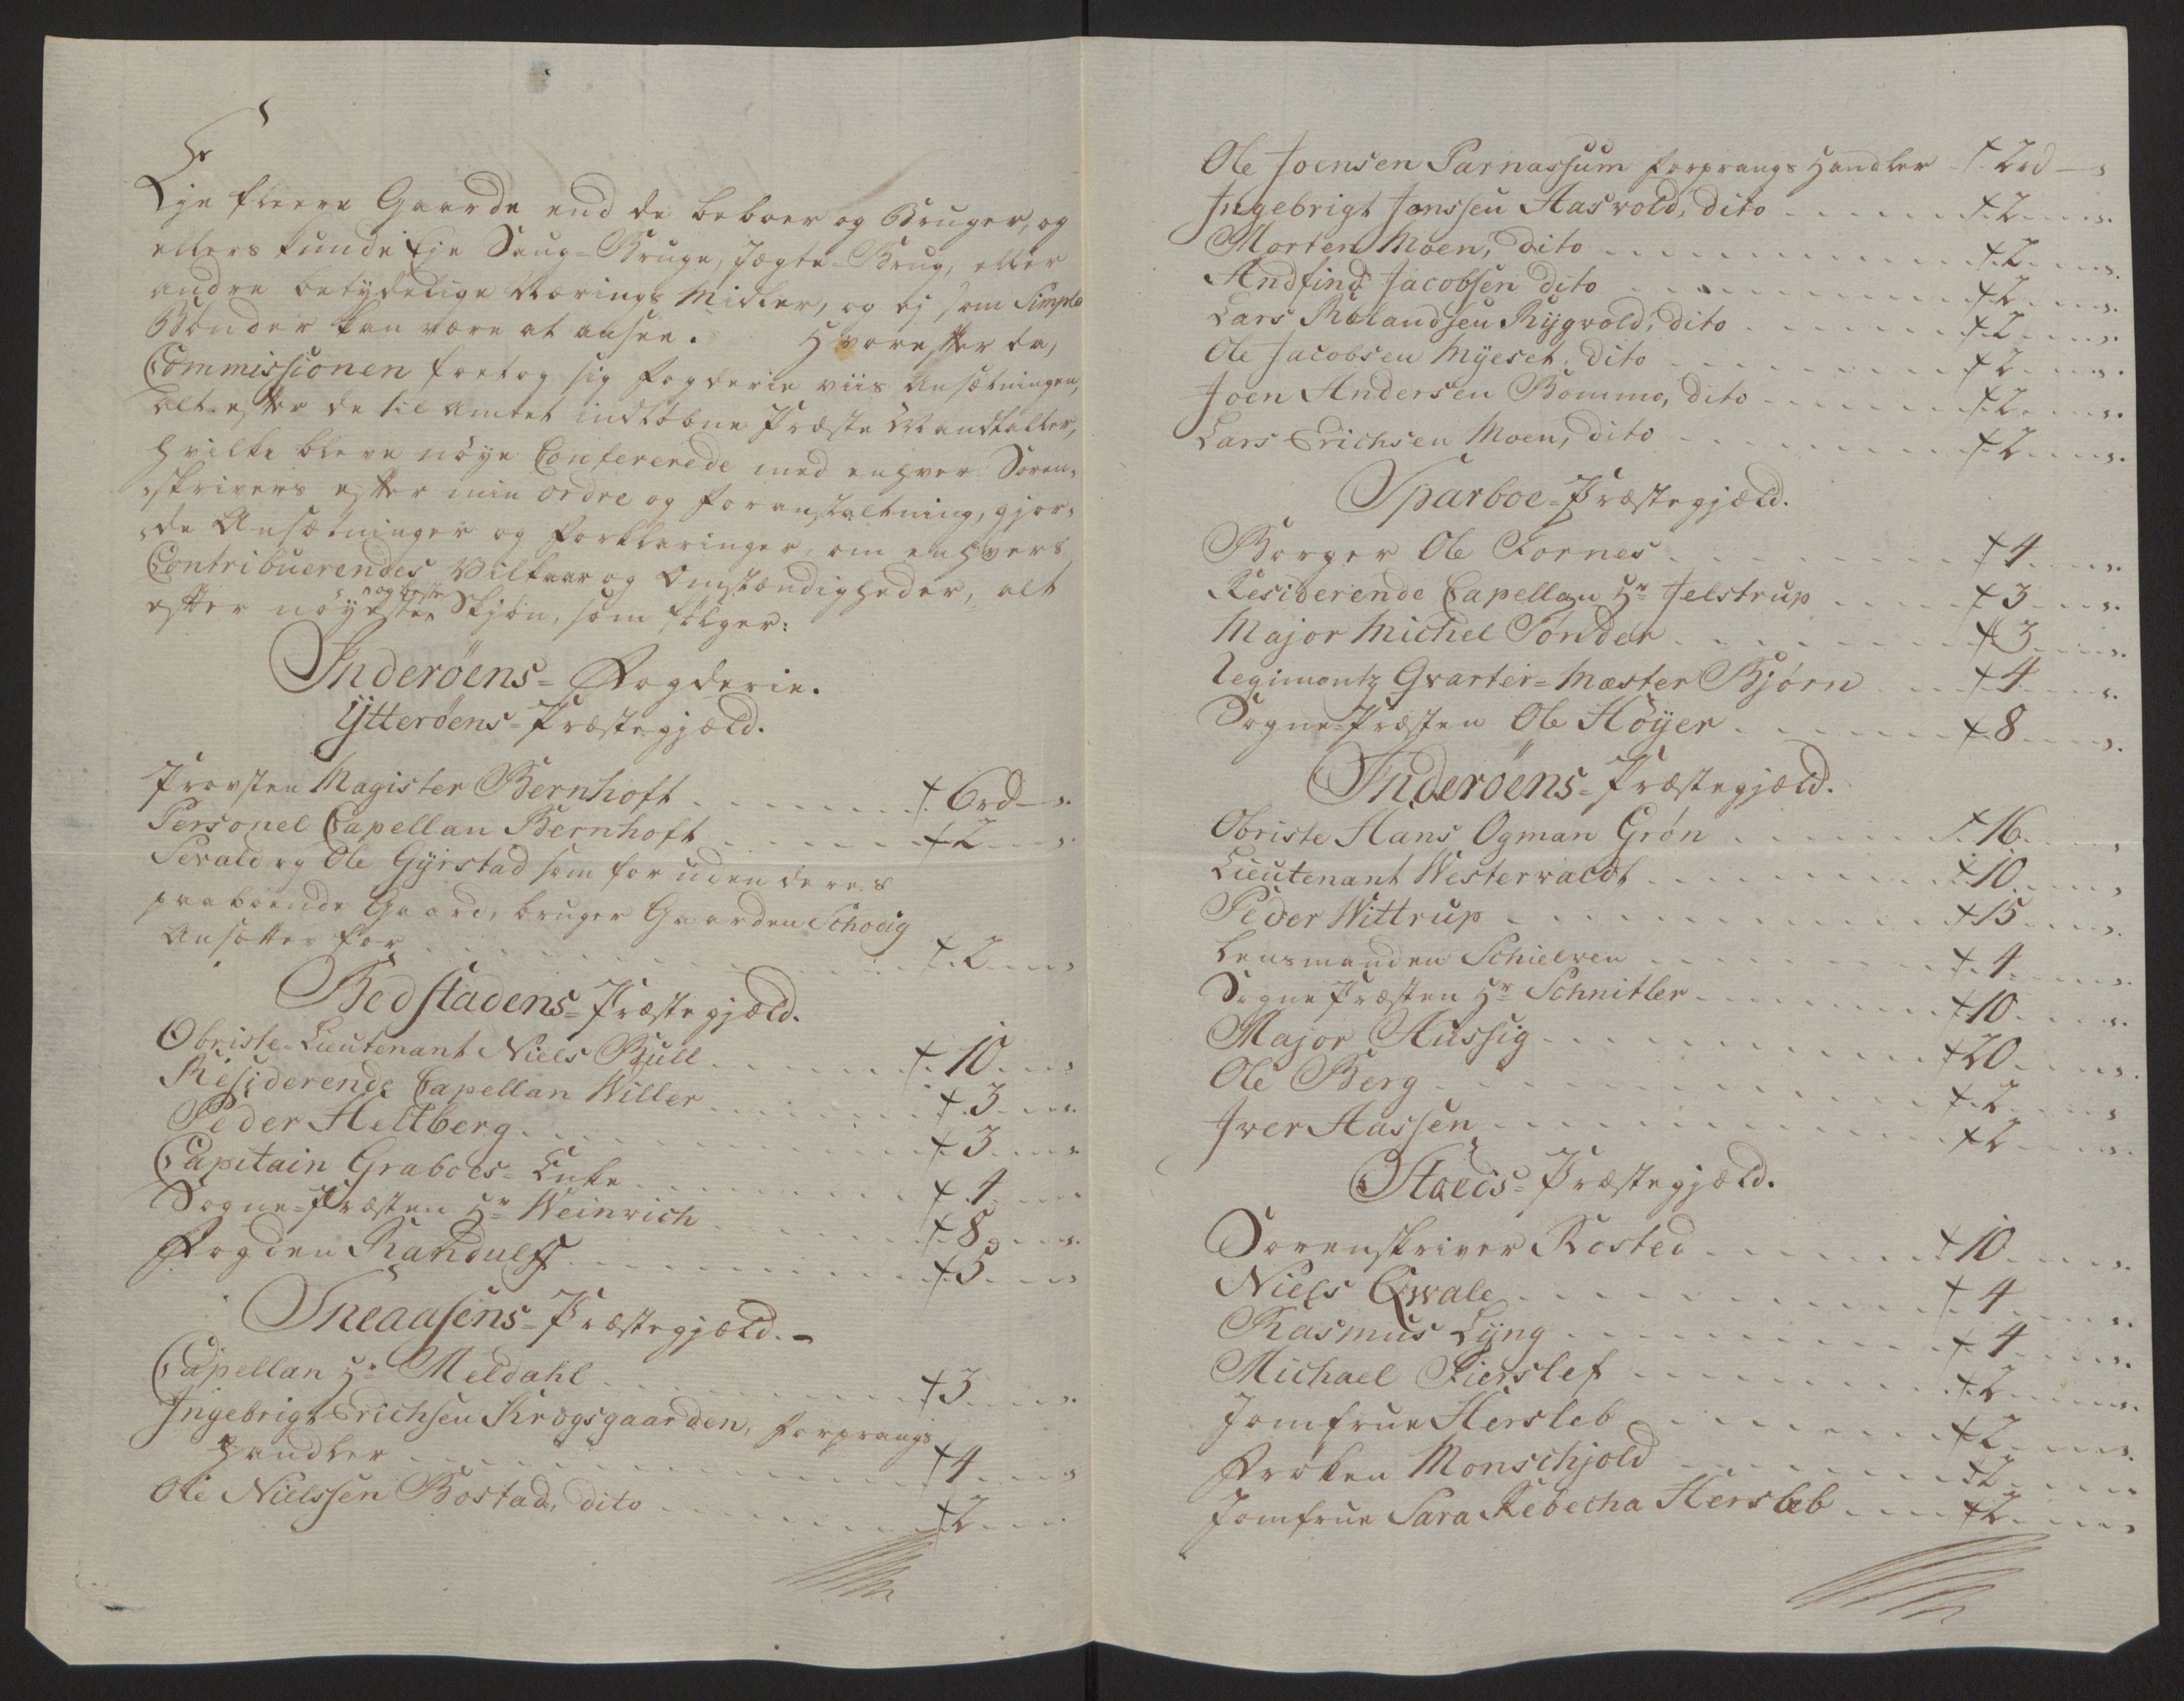 Eÿe fleere Gaarde end de beboer og Bruger, og
ellers kunde Eje Saug-Bruge, Jægte-Brug, eller
andre betÿdelige Nærings Midler, og ej som Simple
Bönder kan være at ansee. Hvorefter da,
Commissionen foretog sig fogderie viis Ansætningen,
alt efter de til Amtet indløbne Præste Mandtaller,
hvilke bleve nöye Confererede med enhver Soren-
skrivers efter min ordre og foranstaltning, gjor-
de Ansætninger og forklaringer, om enhvers
Contribuerendes Vilkaar og Omstændigheder, alt
efter nöyeste og beste Skjön, som fölger:
Inderöens-Fogderie.
Ÿtteröens-Præstegjæld.
Provsten Magister Bernhoft 6 rd
Personel Capellan Bernhoft 2
Sevald og Ole Gÿrstad som foruden deres
paaboende Gaard, bruger Gaarden Schodig
Ansættes for 2
Bedstadens-Præstegjæld.
Obriste-Lieutenant Niels Bull 10
Residerende Capellan Willer 3
Peder Heltberg 3
Capitain Graboes-Enke 4
Sogne-Præsten Hr Weinrich 8
Fogden Randulff 5
Sneaasens-Præstegjæld.
Capellan Hr Meldahl 3
Ingebrigt Erichsen Krogsgaarden, forprangs
handler 4
Ole Nielssen Bostad, dito 2
Ole Joensen Parnassum forprangs Handler 2 rd
Ingebrigt Jonssen Aasvold, dito 2
Morten Moen, dito 2
Andfind Jacobsen dito 2
Lars Rolandsen Rÿgvold, dito 2
Ole Jacobsen Mÿeset, dito 2
Joen Andersen Bommo, dito 2
Lars Erichsen Moen, dito 2
Sparboe-Præstegjæld.
Borger Ole Fornes 4
Residerende Capellan Hr Jelstrup 3
Major Michel Sonder 3
Regimentz Qvarter-Mæster Björn 4
Sogne-Præsten Ole Höÿer 8
Inderöens-Præstegjæld.
Obriste Hans Ogman Grön 16
Lieutenant Westerwaldt 10
Peder Wittrup 15
Lensmanden Schielven 4
Sogne Præsten Hr Schnitler 10
Major Hussig 20
Ole Berg 2
Iver Aassen 2
Stoeds-Præstegjæld.
Sorenskriver Rosted 10
Niels Qwale 4
Rasmus Lÿng 4
Michael Fierslef 2
Jomfrue Hersleb 2
Fröken Monschjold 2
Jomfrue Sara Rebecha Hersleb 2